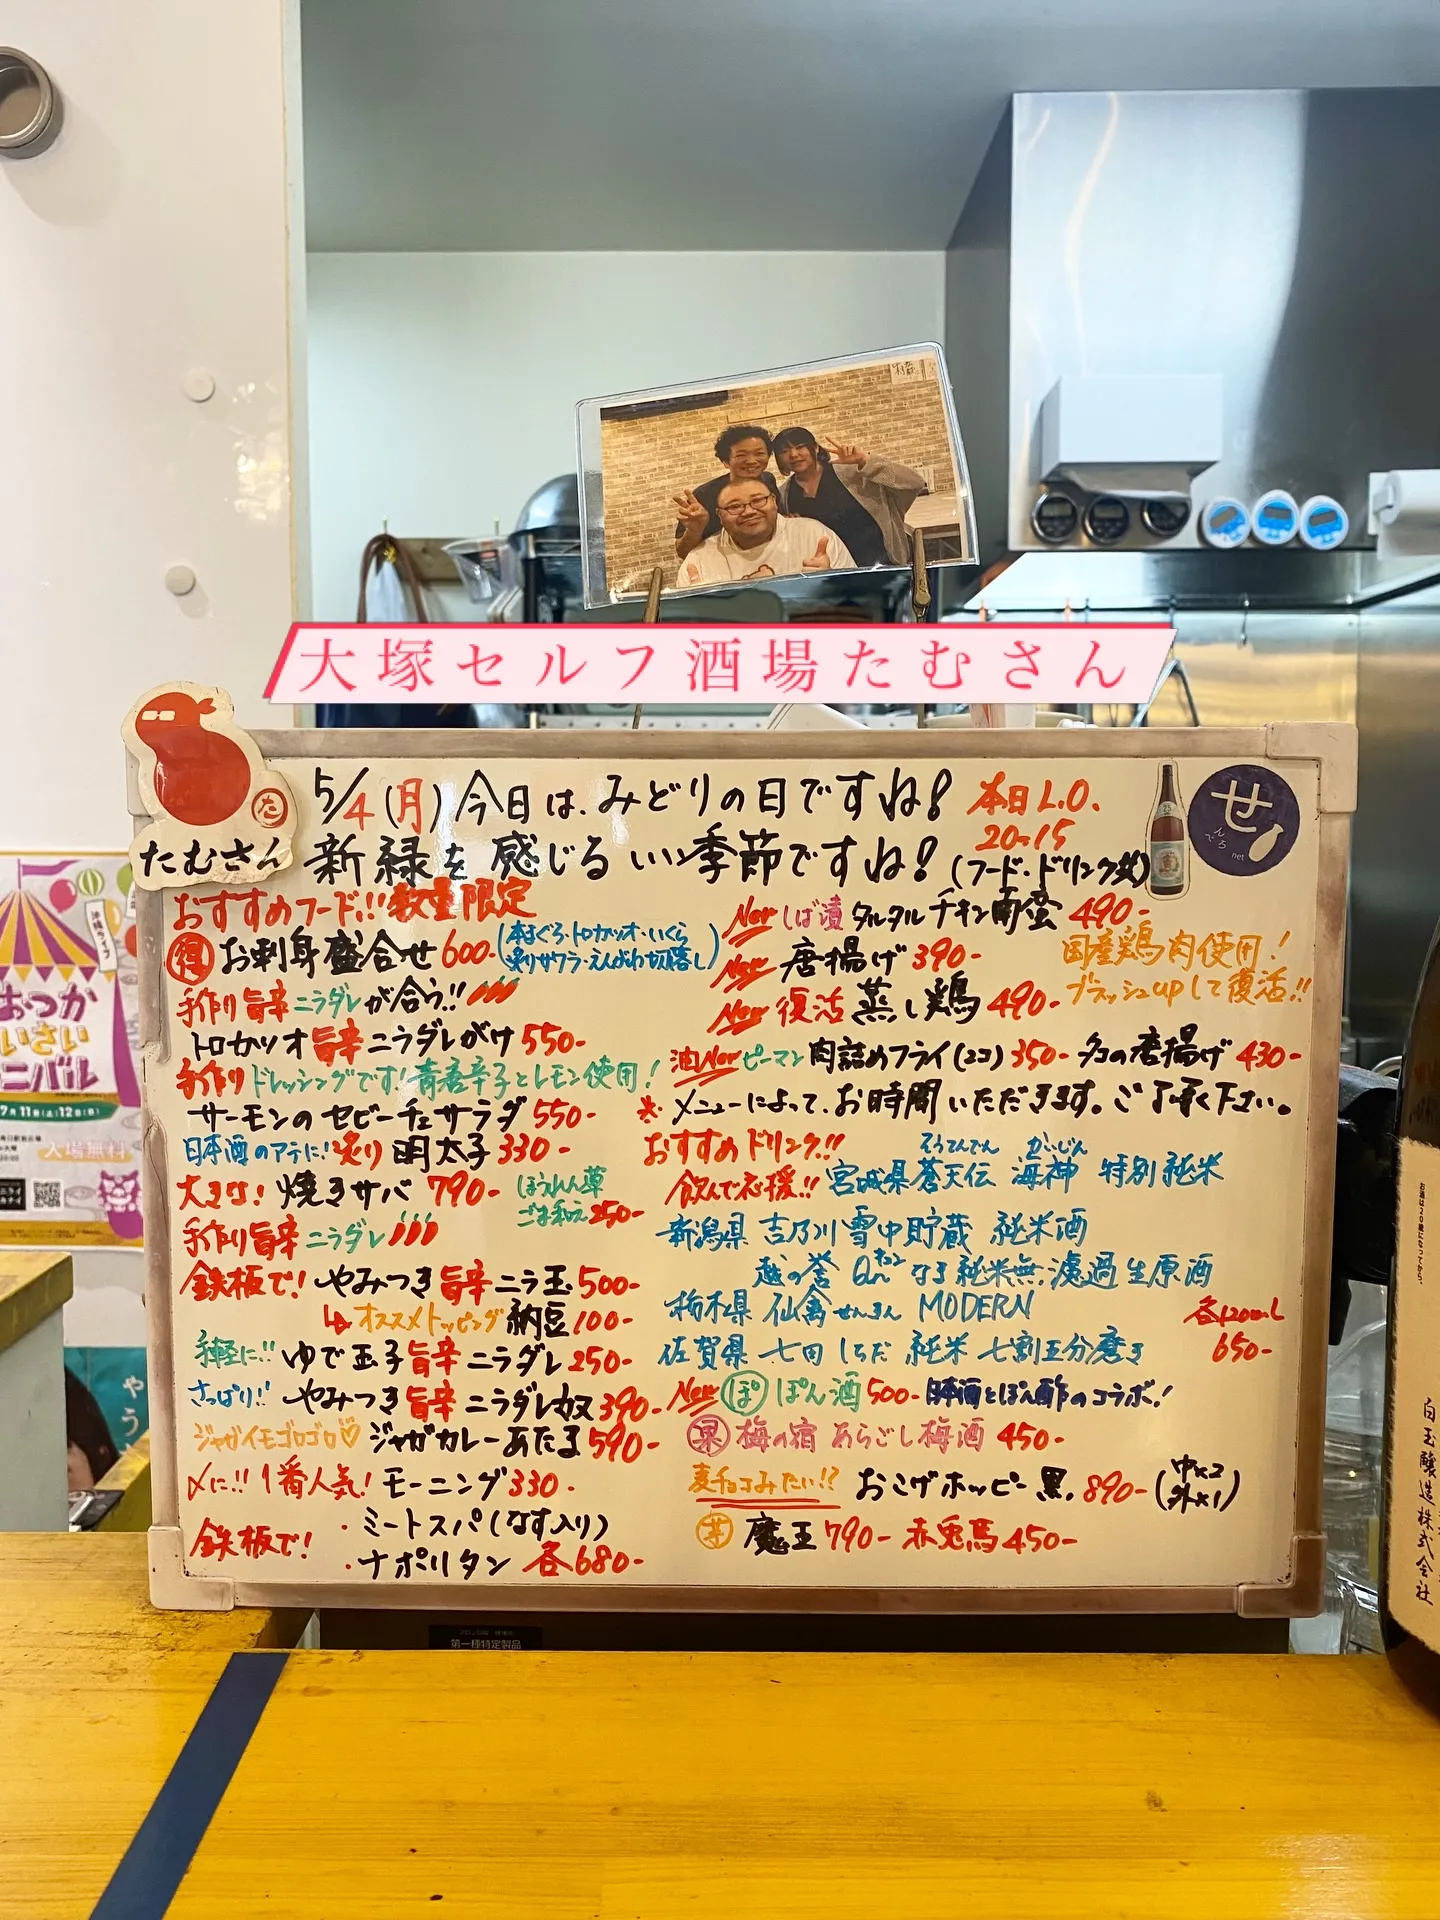 大塚セルフ酒場たむさん
たむさん
た
せ
んべろ
net
5/4(月)今日は、みどりの日ですね!
新緑を感じるいい季節ですね!
本日L.O.
20:15
(フード・ドリンク共)
おすすめフード!!数量限定
得 お刺身盛合せ 600-(本まぐろ・トロカツオ・いくら
炙りサワラ・えんがわ切落し)
手作り旨辛ニラダレが合う!!
トロカツオ旨辛ニラダレがけ 550-
手作りドレッシングです!青唐辛子とレモン使用!
サーモンのセビーチェサラダ 550-
日本酒のアテに!炙り明太子 330-
大きな!焼きサバ 790-
ほうれん草
ごま和え 250-
手作り旨辛ニラダレ
鉄板で!やみつき旨辛ニラ玉 500-
オススメトッピング 納豆 100-
手軽に!!ゆで玉子旨辛ニラダレ 250-
さっぱり!!やみつき旨辛ニラダレ奴 390-
ジャガイモゴロゴロ♡ジャガカレーあたま 590-
〆に!!1番人気!モーニング 330-
鉄板で!
・ミートスパ(なす入り)
・ナポリタン 各680-
New しば漬タルタルチキン南蛮 490-
New 唐揚げ 390-
国産鶏肉使用!
ブラッシュupして復活!!
New 復活 蒸し鶏 490-
油New ピーマン肉詰めフライ(2コ) 350- タコの唐揚げ 430-
※メニューによって、お時間いただきます。ご了承く下さい。
おすすめドリンク!!
飲んで応援!!宮城県 蒼天伝 海神 特別純米
そうてんでん かいじん
新潟県 吉乃川 雪中貯蔵 純米酒
純米無濾過生原酒
栃木県 仙禽 せんきん MODERN
佐賀県 七田 しちだ 純米 七割五分磨き
各120mL
650-
New ぽ ぽん酒 500- 日本酒とぽん酢のコラボ!
果 梅の宿 あらごし梅酒 450-
麦チョコみたい!?おこげホッピー黒 890-(中×2
外×1)
芋 魔王 790- 赤兎馬 450-
おつか
いさい
ニバル
7月11日(土)12日(日)
入場無料
第一種特定製品
お酒は20歳になってから。
白玉醸造株式会社
やう